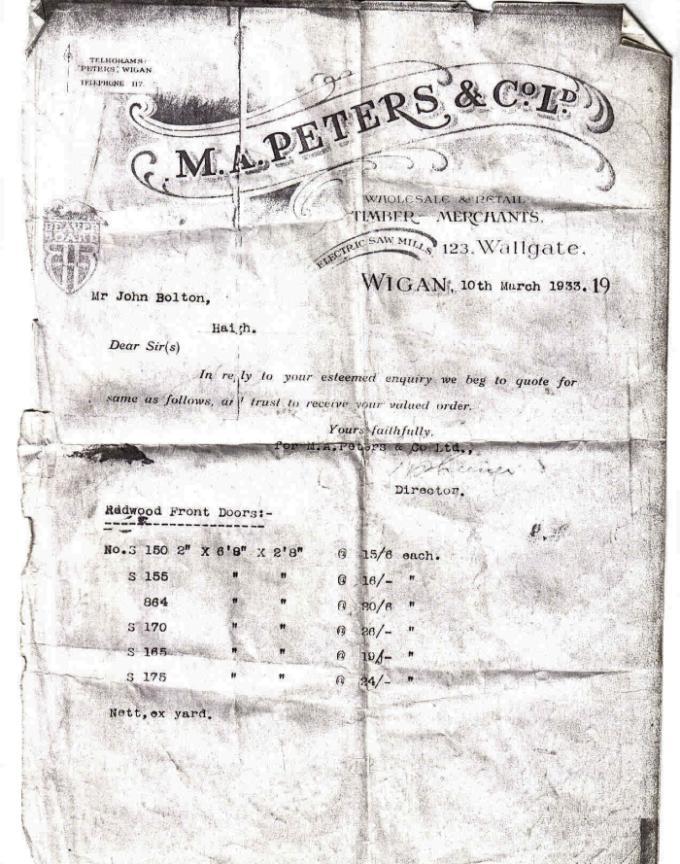 TELEGRAMS:
"PETERS", WIGAN
TELEPHONE 117
M.A. PETERS & Co. Ld.
WHOLESALE & RETAIL
TIMBER MERCHANTS.
ELECTRIC SAW MILLS
123. Wallgate.
WIGAN, 10th March 1933. 19
Mr John Bolton,
Haigh.
Dear Sir(s)
In reply to your esteemed enquiry we beg to quote for
same as follows, and trust to receive your valued order.
Yours faithfully.
for M.A.Peters & Co Ltd.,
Director.
Redwood Front Doors:-
No.S 150 2" X 6'8" X 2'8" @ 15/6 each.
S 155 " " @ 16/- "
864 " " @ /6 "
S 170 " " @ 26/- "
S 165 " " @ "
S 175 " " @ 24/- "
Nett,ex yard.